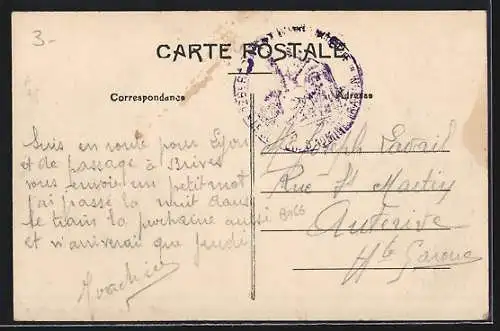 3-
CARTE POSTALE
Correspondance
Adresse
Suis en route pour Lyon
et de passage à Brives
vous envoir un petit mot
j'ai passé la nuit dans
le train la prochaine aussi
et n'arriverai que jeudi
Joachim
Joseph
Rue St Martin
Auterive
Hte Garone